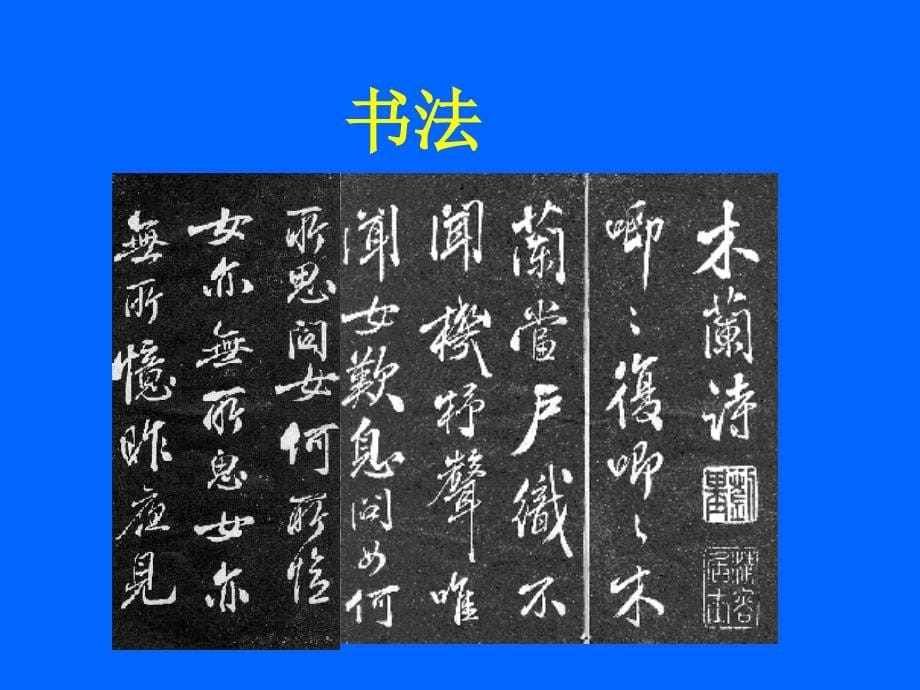 书法
木蘭詩
唧〻復唧〻木
蘭當戶織不
聞機杼聲唯
聞女歎息問女何
所思問女何所憶
女亦無所思女亦
無所憶昨夜見